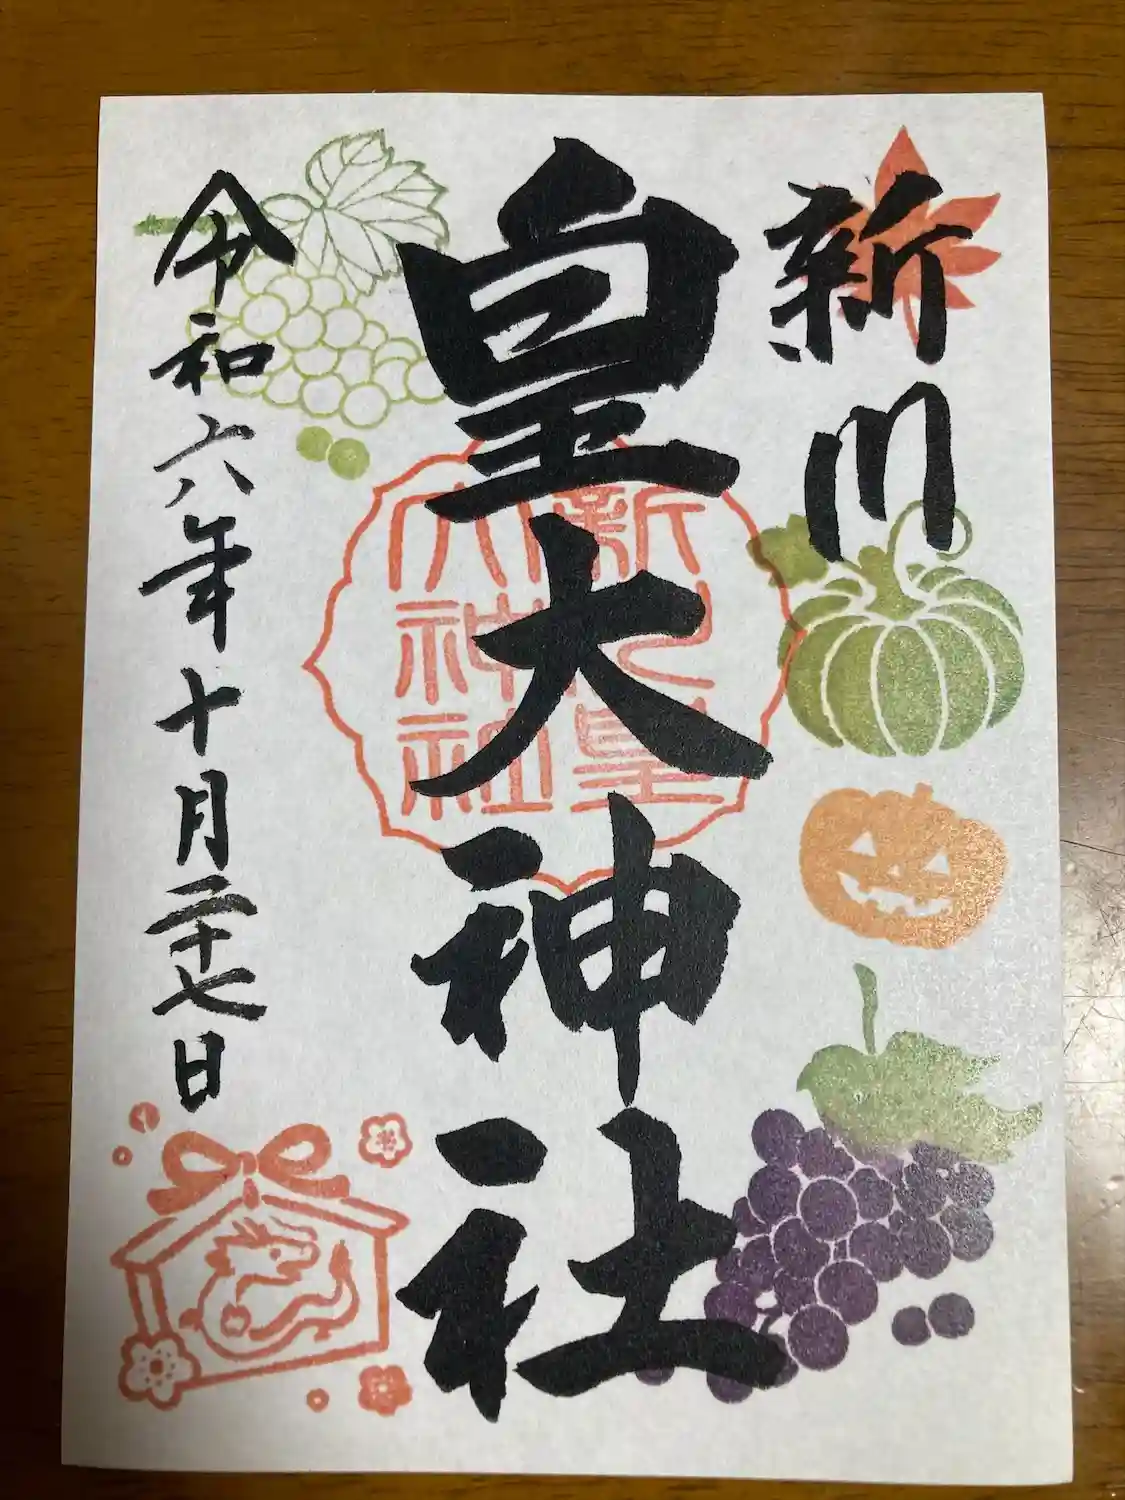 新川
皇大神社
新川皇
大神社
令和六年十月二十七日